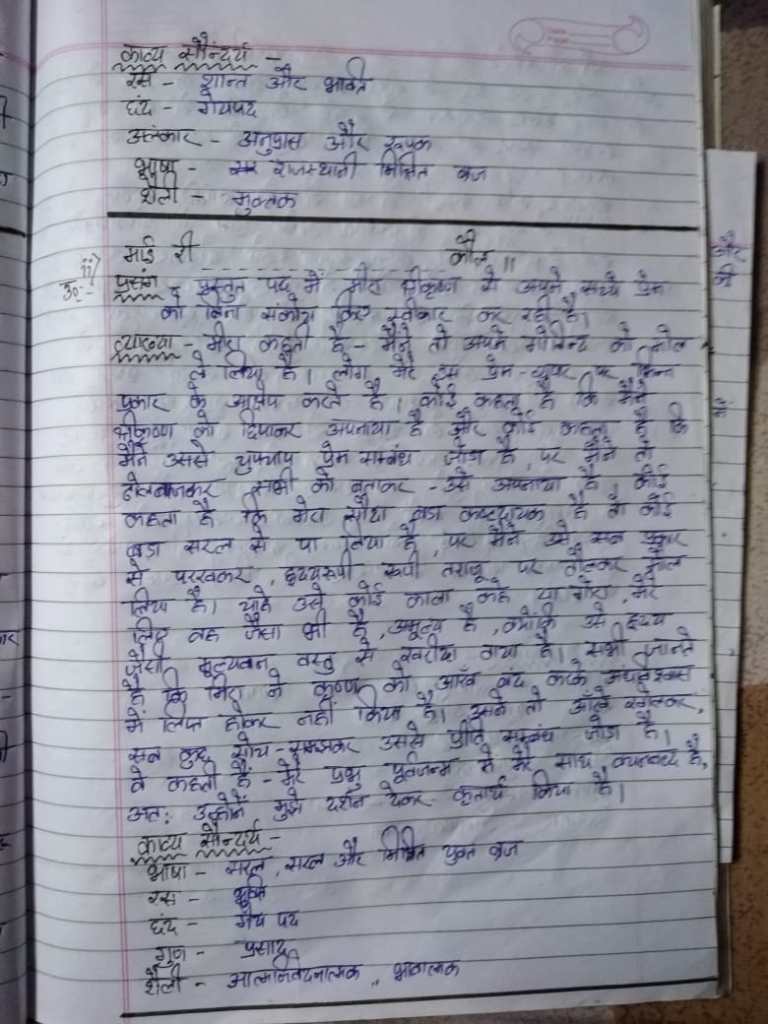 काव्य सौन्दर्य -
रस - शान्त और भक्ति
छंद - गेयपद
अलंकार - अनुप्रास और रूपक
भाषा - राजस्थानी मिश्रित ब्रज
शैली - मुक्तक
ii) माई री ------------ मोल॥
उ०:- प्रसंग - प्रस्तुत पद में मीरा श्रीकृष्ण से अपने सच्चे प्रेम
को बिना संकोच किए स्वीकार कर रही है।
व्याख्या - मीरा कहती है - मैंने तो अपने गोविन्द को मोल
ले लिया है। लोग मेरे इस प्रेम-व्यापार पर भिन्न
प्रकार के आक्षेप करते है। कोई कहता है कि मैंने
श्रीकृष्ण को छिपाकर अपनाया है और कोई कहता है कि
मैंने उससे चुपचाप प्रेम सम्बंध जोड़ा है, पर मैंने तो
ढोलबजाकर सभी को बताकर उसे अपनाया है। कोई
कहता है कि मेरा सौदा बड़ा कष्टदायक है तो कोई
बड़ा सरल से पा लिया है, पर मैंने उसे सब प्रकार
से परखकर, हृदयरूपी रूपी तराजू पर तौलकर मोल
लिया है। चाहे उसे कोई काला कहे या गोरा, मेरे
लिए वह जैसा भी है, अमूल्य है, क्योंकि उसे हृदय
जैसी मूल्यवान वस्तु से खरीदा गया है। सभी जानते
है कि मीरा ने कृष्ण को आँख बंद करके अंधविश्वास
में लिप्त होकर नहीं किया है। उसने तो आँखें खोलकर,
सब कुछ सोच-समझकर उससे प्रीति सम्बंध जोड़ा है।
वे कहती है - मेरे प्रभु पूर्वजन्म से मेरे साथ वचनबद्ध है,
अतः उन्होंने मुझे दर्शन देकर कृतार्थ किया है।
काव्य सौन्दर्य -
भाषा - सरल, सरल और मिश्रित युक्त ब्रज
रस - भक्ति
छंद - गेय पद
गुण - प्रसाद
शैली - आत्मनिवेदनात्मक, भावात्मक